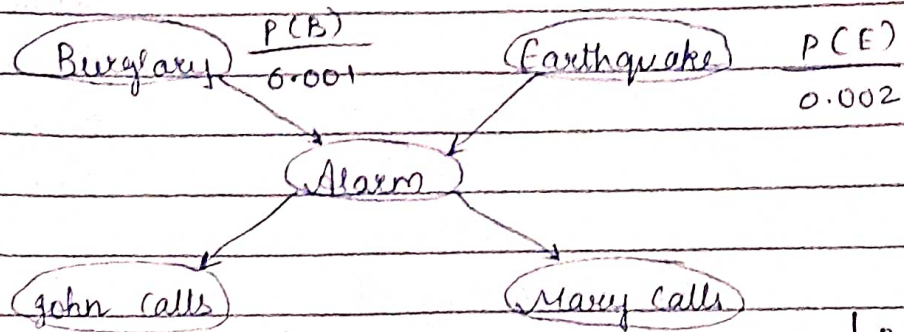 Burglary P(B) Earthquake P(E)
0.001 0.002
Alarm
John Calls Mary Calls